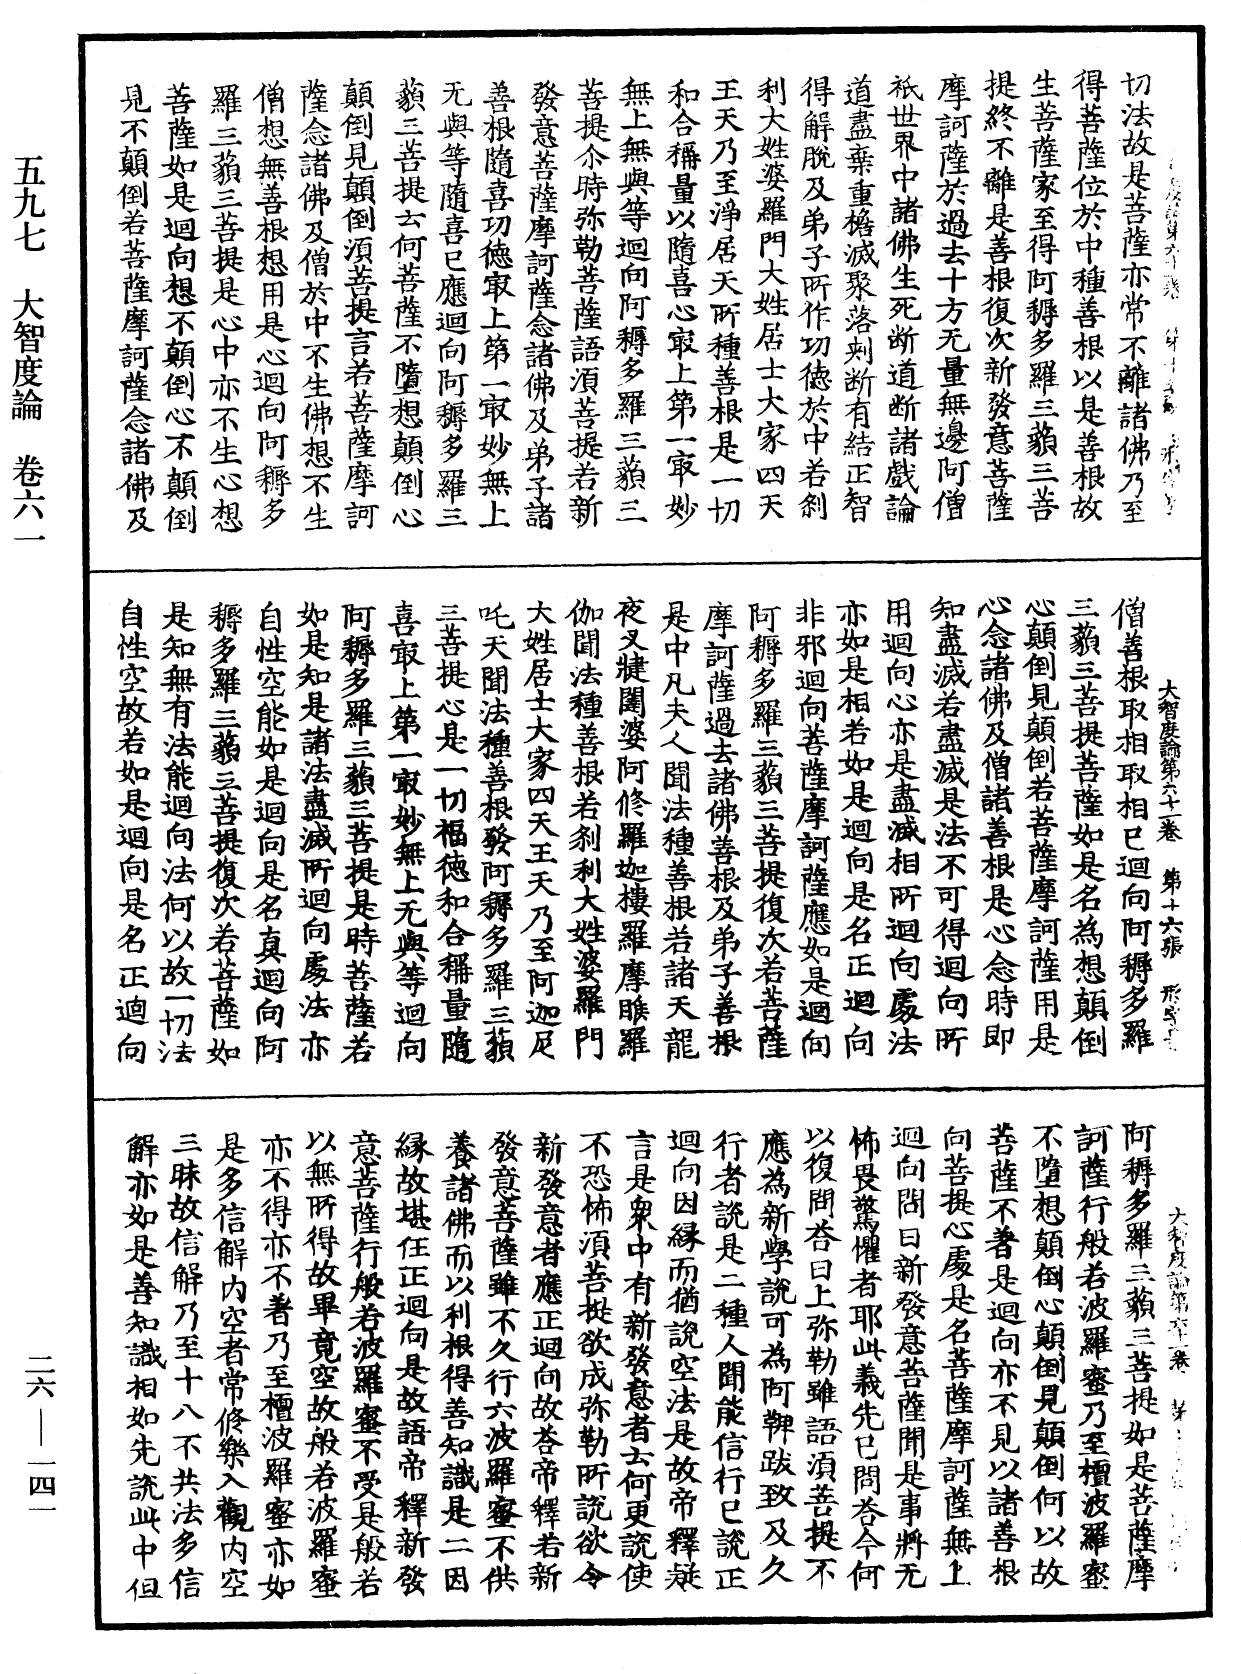 五九七　大智度論　卷六一
二六—一四一
切法故是菩薩亦常不離諸佛乃至
得菩薩位於中種善根以是善根故
生菩薩家至得阿耨多羅三藐三菩
提終不離是善根復次新發意菩薩
摩訶薩於過去十方无量無邊阿僧
祇世界中諸佛生死断道断諸戲論
道盡棄重檐滅聚落刺断有結正智
得解脫及弟子所作功德於中若刹
利大姓婆羅門大姓居士大家四天
王天乃至淨居天所種善根是一切
和合稱量以隨喜心㝡上第一㝡妙
無上無與等迴向阿耨多羅三藐三
菩提尒時弥勒菩薩語湏菩提若新
發意菩薩摩訶薩念諸佛及弟子諸
善根隨喜功德㝡上第一㝡妙無上
无與等隨喜已應迴向阿耨多羅三
藐三菩提云何菩薩不墮想顛倒心
顛倒見顛倒湏菩提言若菩薩摩訶
薩念諸佛及僧於中不生佛想不生
僧想無善根想用是心迴向阿耨多
羅三藐三菩提是心中亦不生心想
菩薩如是迴向想不顛倒心不顛倒
見不顛倒若菩薩摩訶薩念諸佛及
大智度論第六十一卷　第十六張　形
僧善根取相取相已迴向阿耨多羅
三藐三菩提菩薩如是名為想顛倒
心顛倒見顛倒若菩薩摩訶薩用是
心念諸佛及僧諸善根是心念時即
知盡滅若盡滅是法不可得迴向所
用迴向心亦是盡滅相所迴向處法
亦如是相若如是迴向是名正迴向
非邪迴向菩薩摩訶薩應如是迴向
阿耨多羅三藐三菩提復次若菩薩
摩訶薩過去諸佛善根及弟子善根
是中凡夫人聞法種善根若諸天龍
夜叉犍闥婆阿修羅迦樓羅摩睺羅
伽聞法種善根若刹利大姓婆羅門
大姓居士大家四天王天乃至阿迦尼
吒天聞法種善根發阿耨多羅三藐
三菩提心是一切福德和合稱量隨
喜㝡上第一㝡妙無上无與等迴向
阿耨多羅三藐三菩提是時菩薩若
如是知是諸法盡滅所迴向處法亦
自性空能如是迴向是名真迴向阿
耨多羅三藐三菩提復次若菩薩如
是知無有法能迴向法何以故一切法
自性空故若如是迴向是名正迴向
大智度論第六十一卷　第
阿耨多羅三藐三菩提如是菩薩摩
訶薩行般若波羅蜜乃至檀波羅蜜
不墮想顛倒心顛倒見顛倒何以故
菩薩不著是迴向亦不見以諸善根
向菩提心處是名菩薩摩訶薩無上
迴向問曰新發意菩薩聞是事將无
怖畏驚懼者耶此義先已問荅今何
以復問荅曰上弥勒雖語湏菩提不
應為新學說可為阿鞞跋致及久
行者說是二種人聞能信行已說正
迴向因緣而猶說空法是故帝釋疑
言是眾中有新發意者云何更說使
不恐怖湏菩提欲成弥勒所說欲令
新發意者應正迴向故荅帝釋若新
發意菩薩雖不久行六波羅蜜不供
養諸佛而以利根得善知識是二因
緣故堪任正迴向是故語帝釋新發
意菩薩行般若波羅蜜不受是般若
以無所得故畢竟空故般若波羅蜜
亦不得亦不著乃至檀波羅蜜亦如
是多信解內空者常修樂入觀內空
三昧故信解乃至十八不共法多信
解亦如是善知識相如先說此中但